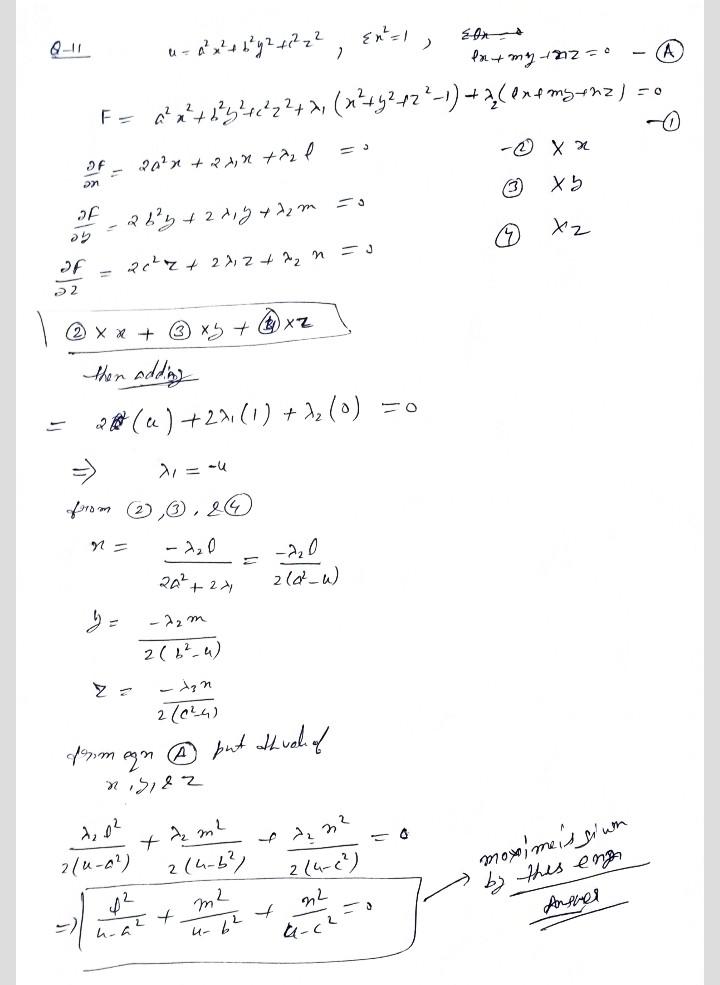 Q-11 u = a²x² + b²y² + c²z² , Σx² = 1 ,
lx + my + nz = 0 — (A)
F = a²x² + b²y² + c²z² + λ₁ (x² + y² + z² - 1) + λ₂ (lx + my + nz) = 0
— (1)
∂F/∂x = 2a²x + 2λ₁x + λ₂ l = 0 — (2) × x
∂F/∂y = 2b²y + 2λ₁y + λ₂ m = 0 (3) × y
∂F/∂z = 2c²z + 2λ₁z + λ₂ n = 0 (4) × z
(2) × x + (3) × y + (4) × z
then adding
= 2 (u) + 2λ₁(1) + λ₂(0) = 0
⇒ λ₁ = -u
from (2), (3), & (4)
x = -λ₂l / 2a² + 2λ₁ = -λ₂l / 2(a² - u)
y = -λ₂m / 2(b² - u)
z = -λ₂n / 2(c² - u)
from eqn (A) put th value of
x, y, & z
λ₂ l² / 2(u - a²) + λ₂ m² / 2(u - b²) + λ₂ n² / 2(u - c²) = 0
⇒ l² / u - a² + m² / u - b² + n² / u - c² = 0
by this eqn
Answer